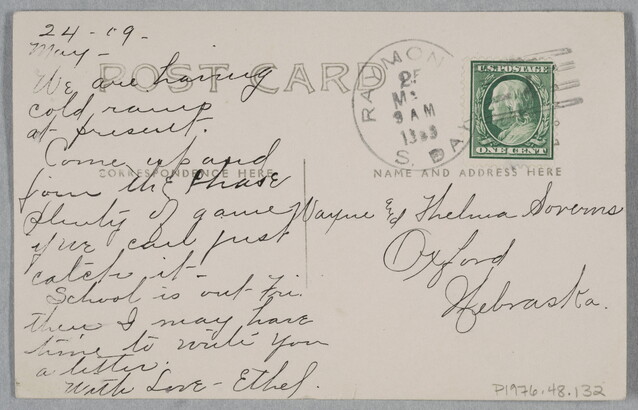 24-09-
May-
We are having
cold
at present.
Come up and
join the chase
plenty of game
if we can just
catch it-
School is out Fri.
then I may have
time to write you
a letter.
With Love- Ethel.
POST CARD
CORRESPONDENCE HERE
NAME AND ADDRESS HERE
RAYMON
9 AM
S. DAK
U.S. POSTAGE
ONE CENT
Wayne and Thelma
Oxford
Nebraska.
P1976.48.132